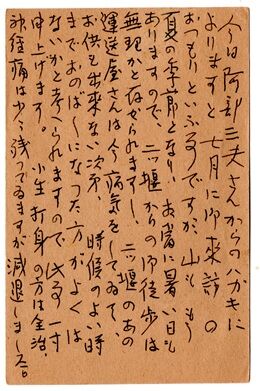 今日阿部三夫さんからのハガキに
よりますと七月に御来訪の
おつもりといふ事ですが 山も もう
夏の季節となり、お暑に暑い日も
ありますので、二ッ堰からの御徒歩は
無理かと存ぜられます。二ッ堰のあの
運送屋さんは今病気をしてゐて、
お供も出来ない次第、時候のよい時
までおのばしになった方がよくは
ないかと考へられますので 一寸
申上げます。小生打身の方は全治、
神経痛は少々残ってゐますが減退しました。